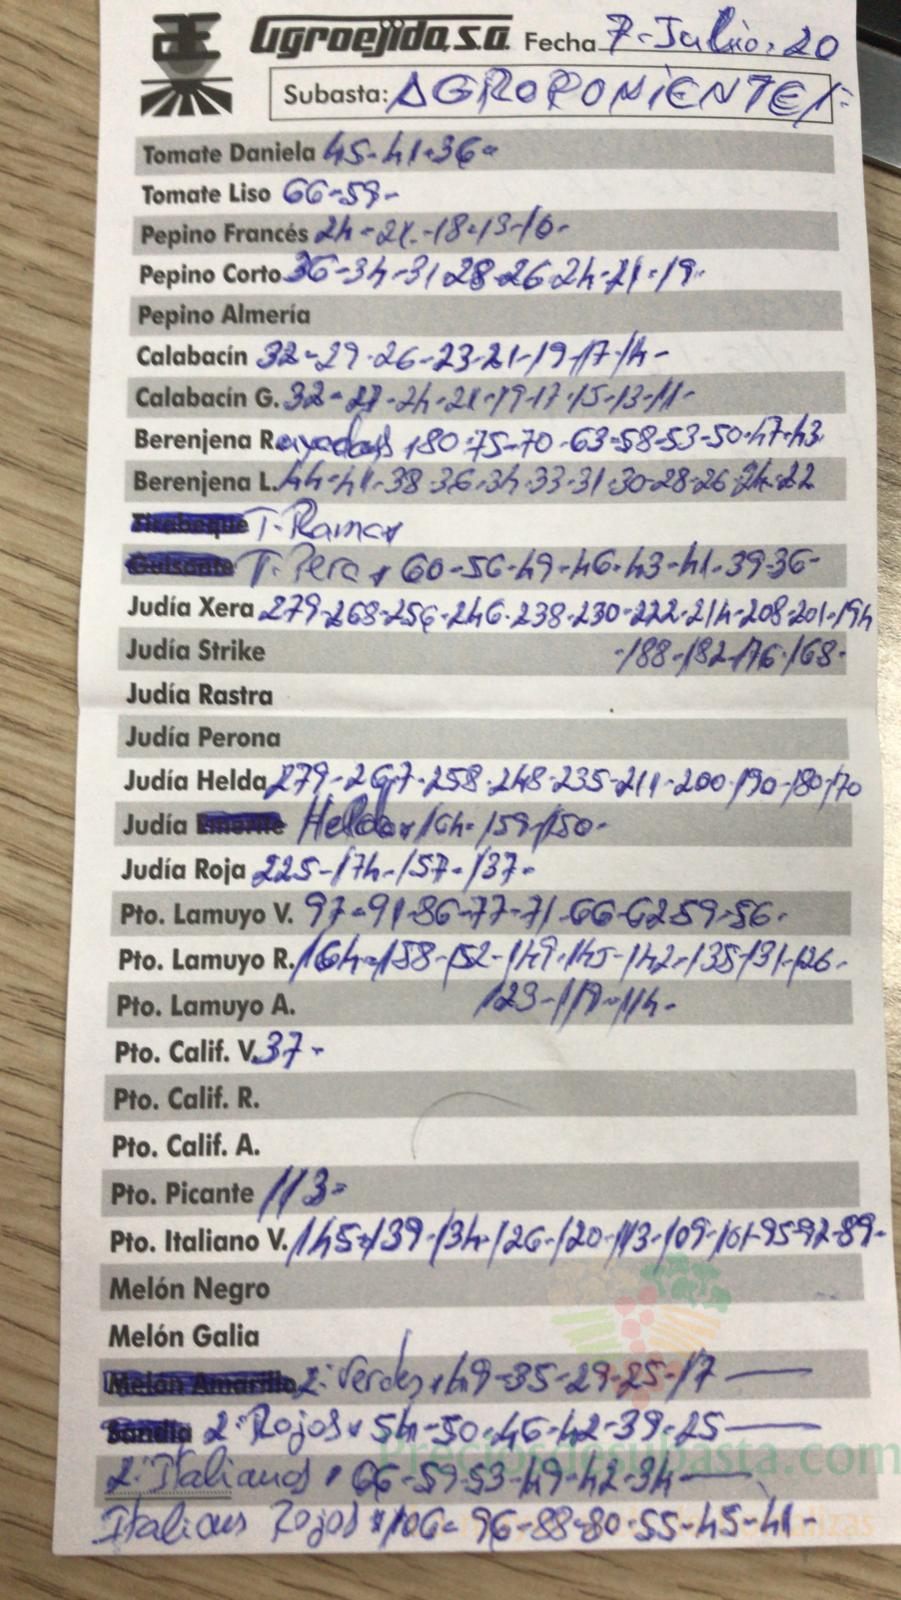 Agroejido, s.a. Fecha 7-Julio-20
Subasta: AGROPONIENTE
Tomate Daniela 45-41-36-
Tomate Liso 66-59-
Pepino Francés 24-21-18-13-10-
Pepino Corto 36-34-31-28-26-24-21-19-
Pepino Almería
Calabacín 32-29-26-23-21-19-17-14-
Calabacín G. 32-27-24-21-19-17-15-13-11-
Berenjena Rayadas 80-75-70-63-58-53-50-47-43
Berenjena L. 44-41-38-36-34-33-31-30-28-26-24-22
Tirabeque T. Rama
Guisante T. Pera 60-56-49-46-43-41-39-36-
Judía Xera 279-268-256-246-238-230-222-214-208-201-194
Judía Strike -188-182-176-168-
Judía Rastra
Judía Perona
Judía Helda 279-267-258-248-235-211-200-190-180-170
Judía Helda 164-159-150-
Judía Roja 225-174-157-137-
Pto. Lamuyo V. 97-91-86-77-71-66-62-59-56-
Pto. Lamuyo R. 164-158-152-149-145-142-135-131-126-
Pto. Lamuyo A. 123-119-114-
Pto. Calif. V. 37-
Pto. Calif. R.
Pto. Calif. A.
Pto. Picante 113-
Pto. Italiano V. 145-139-134-126-120-113-109-101-95-92-89-
Melón Negro
Melón Galia
Melón Amarillo 2ª Verdes 49-35-29-25-17
Sandía 2ª Rojos 54-50-46-42-39-25
2ª Italianos 66-59-53-49-42-34
Italianos Rojos 106-96-88-80-55-45-41-
Preciosdesubasta.com